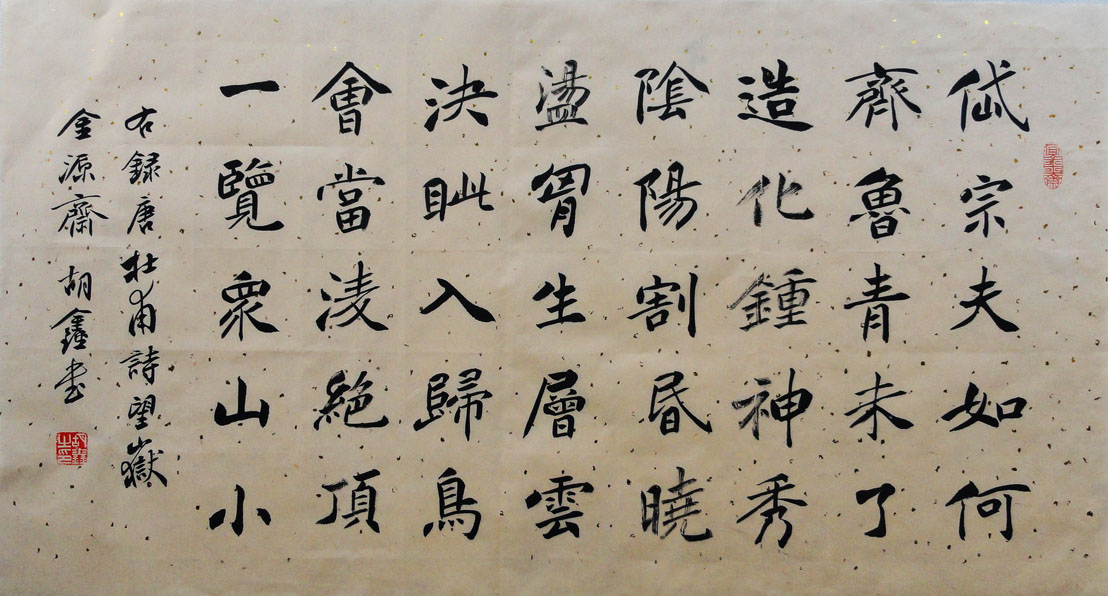 岱宗夫如何
齊魯青未了
造化鍾神秀
陰陽割昏曉
盪胷生層雲
決眦入歸鳥
會當淩絶頂
一覽衆山小
右録唐杜甫詩望嶽
金源齋 胡鑫書